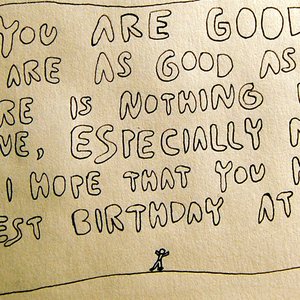 YOU ARE GOOD
ARE AS GOOD AS
RE IS NOTHING
VE, ESPECIALLY
I HOPE THAT YOU
EST BIRTHDAY AT